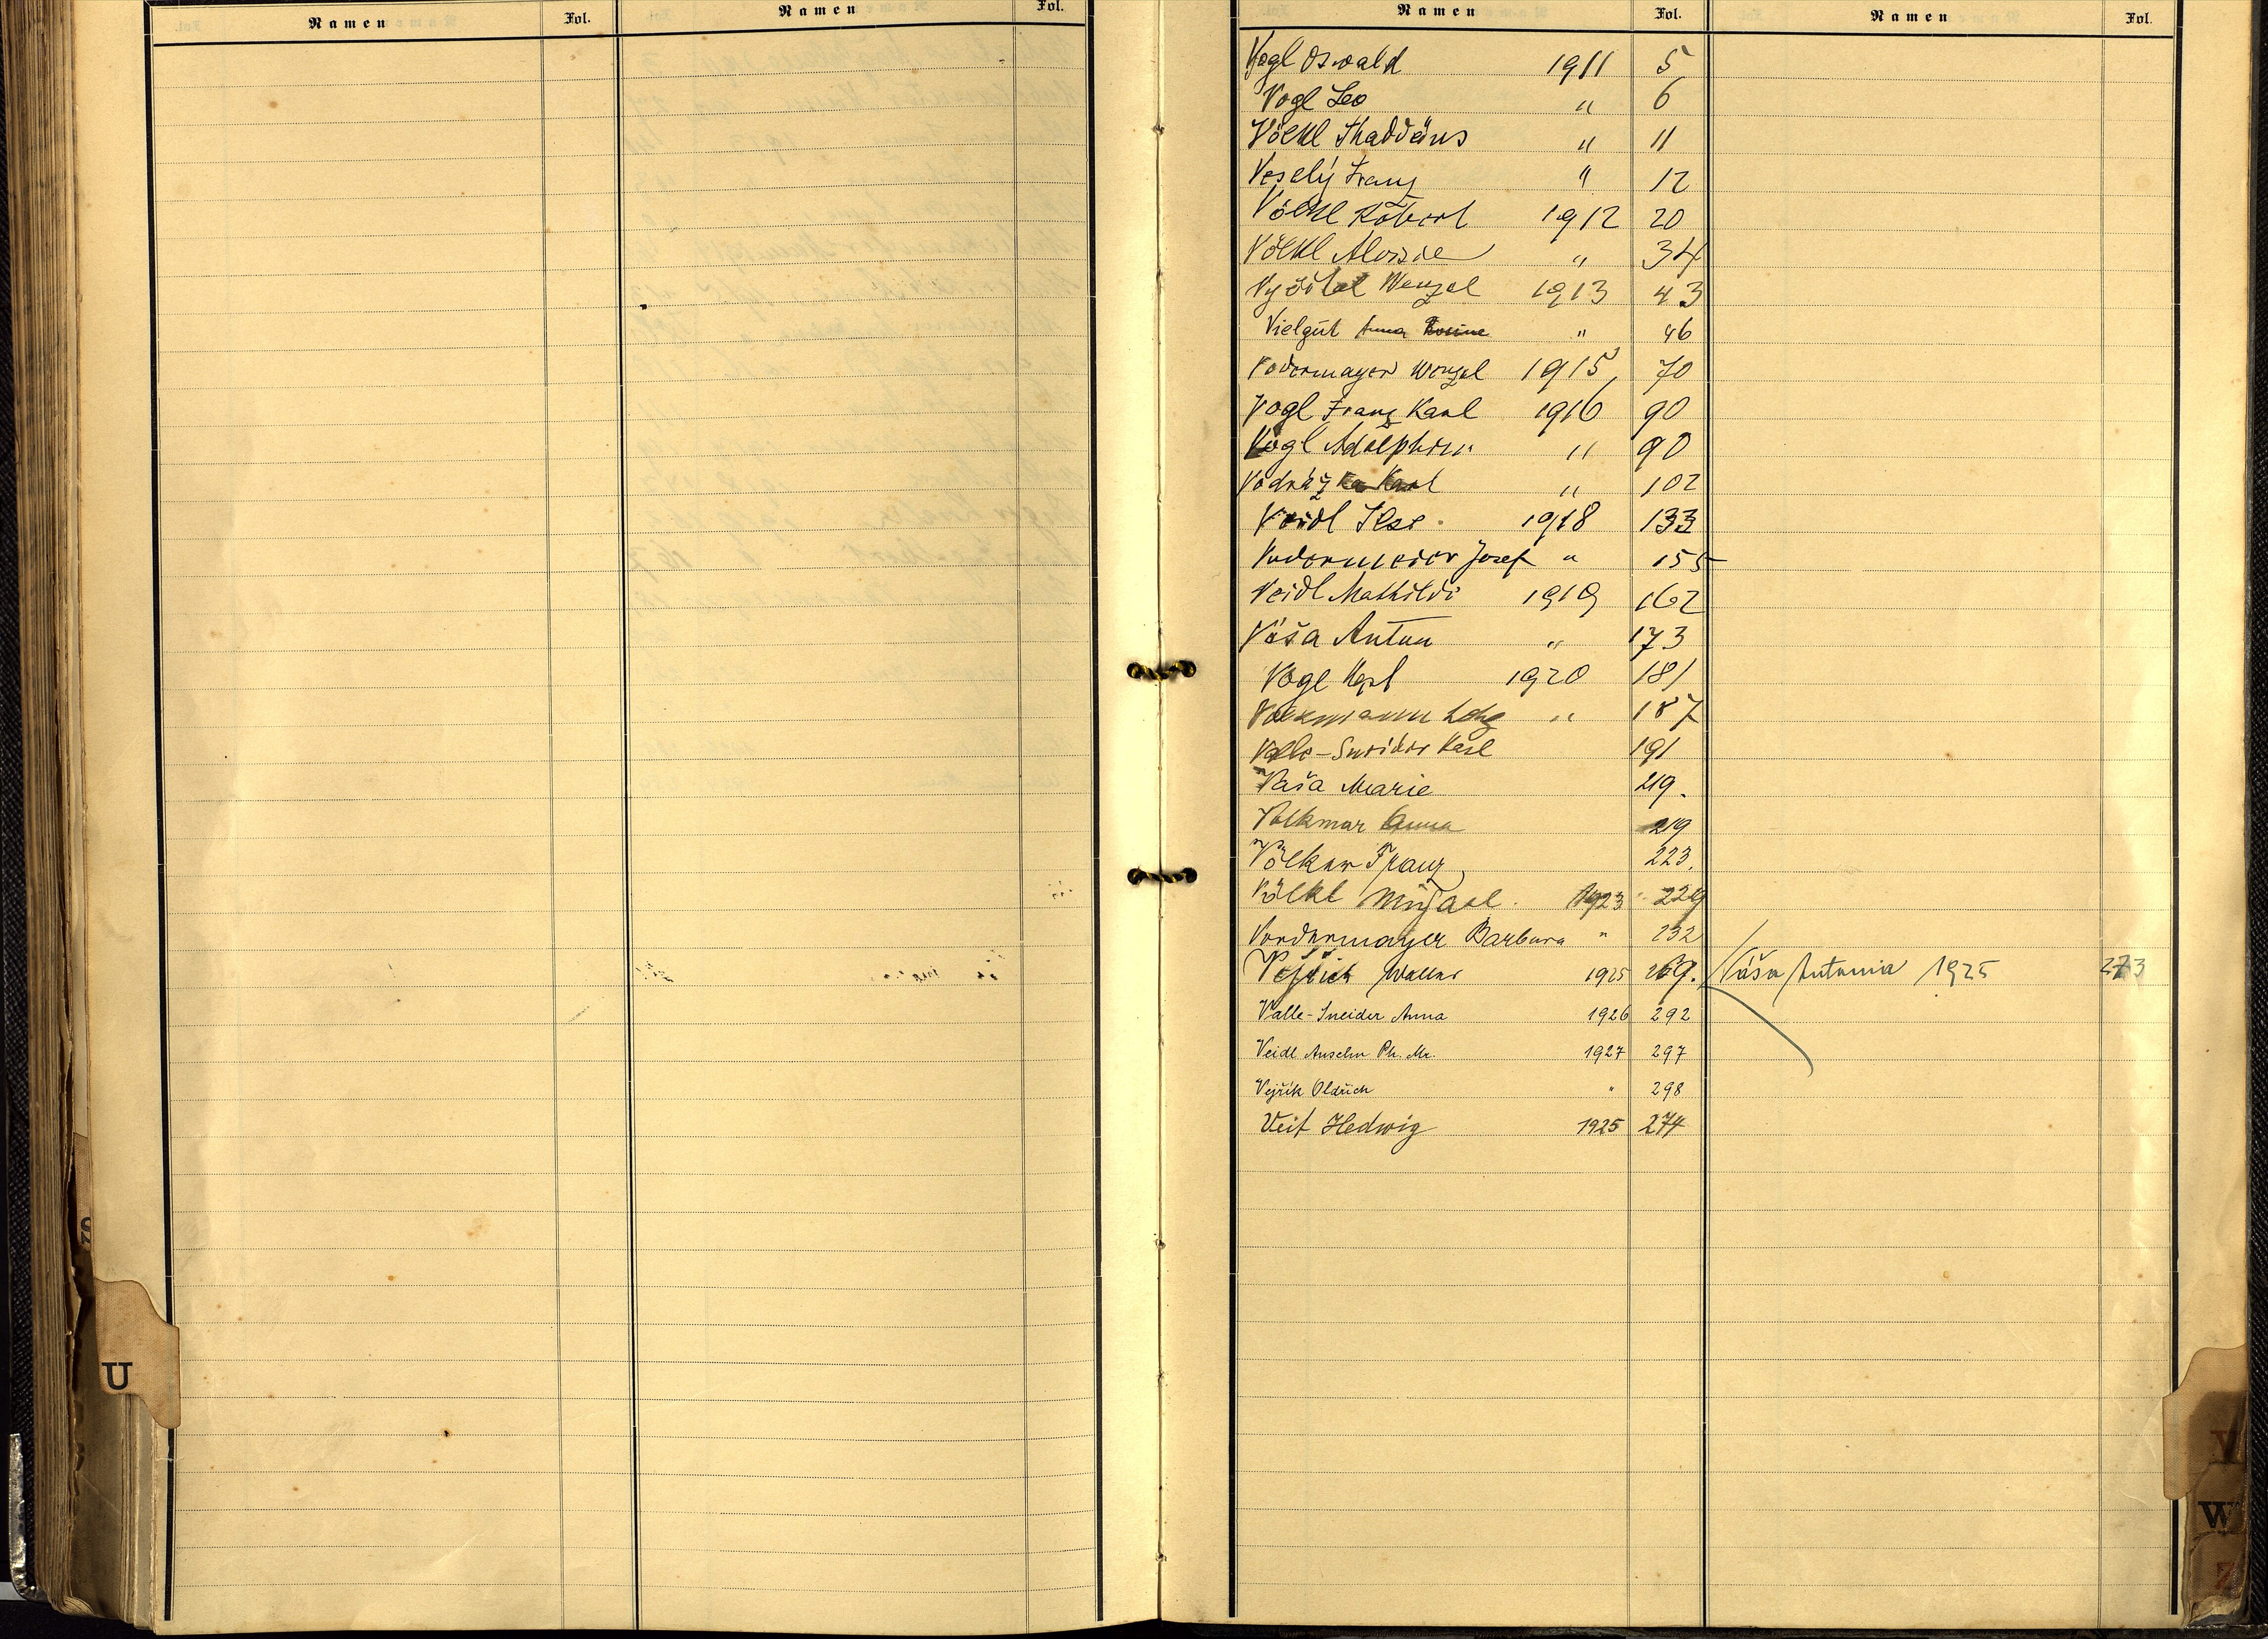 Namen Fol. Namen Fol.
Namen Fol. Namen Fol.
Vogl Oswald 1911 5
Vogl Leo " 6
Völkl Thaddäus " 11
Veselý Franz " 12
Völkl Robert 1912 20
Völkl Aloisie " 34
Wenzel 1913 43
Vielgut Anna Rosine " 46
Vodermayer Wenzel 1915 70
Vogl Franz Karl 1916 90
Vogl Adolphine " 90
Vodrážka Karl " 102
Veidl Ilse 1918 133
Vodermeier Josef " 155
Veidl Mathilde 1919 162
Váša Anton " 173
Vogl 1920 181
Volkmann " 187
Valle-Sneider Karl 191
Vaša Marie 219.
Volkmar Anna 219
Völker Franz 223.
Völkl 1923 229
Vordermayer Barbara " 232
Walter 1925 269. Váša Antonia 1925 273
Valle-Sneider Anna 1926 292
Veidl Anselm Ph. Mr. 1927 297
Vejřík Oldřich " 298
Veit Hedwig 1925 274
U
V
W
Z